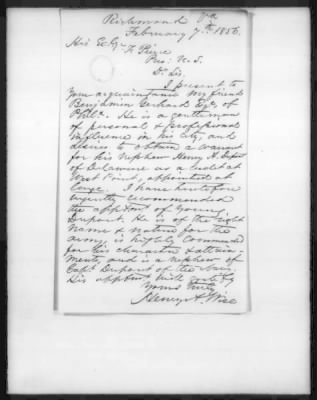 Richmond Va
February 7th 1856.
His Excy F. Pierce
Pres. U.S.
Dr. Sir.
I present to
your acquaintance my friend
Benjamin Gerhard Esqr of
Phila. He is a gentleman
of personal & professional
influence in his city, and
desires to obtain a warrant
for his nephew Henry A. Dupont
of Delaware as a cadet at
West Point, appointed at
large. I have heretofore
urgently recommended
the apptmt of young
Dupont. He is of the right
name & nature for the
army, is highly commended
for his character & attain-
ments, and is a nephew of
Capt Dupont of the Navy.
His apptmt will gratify
Yours truly
Henry A. Wise